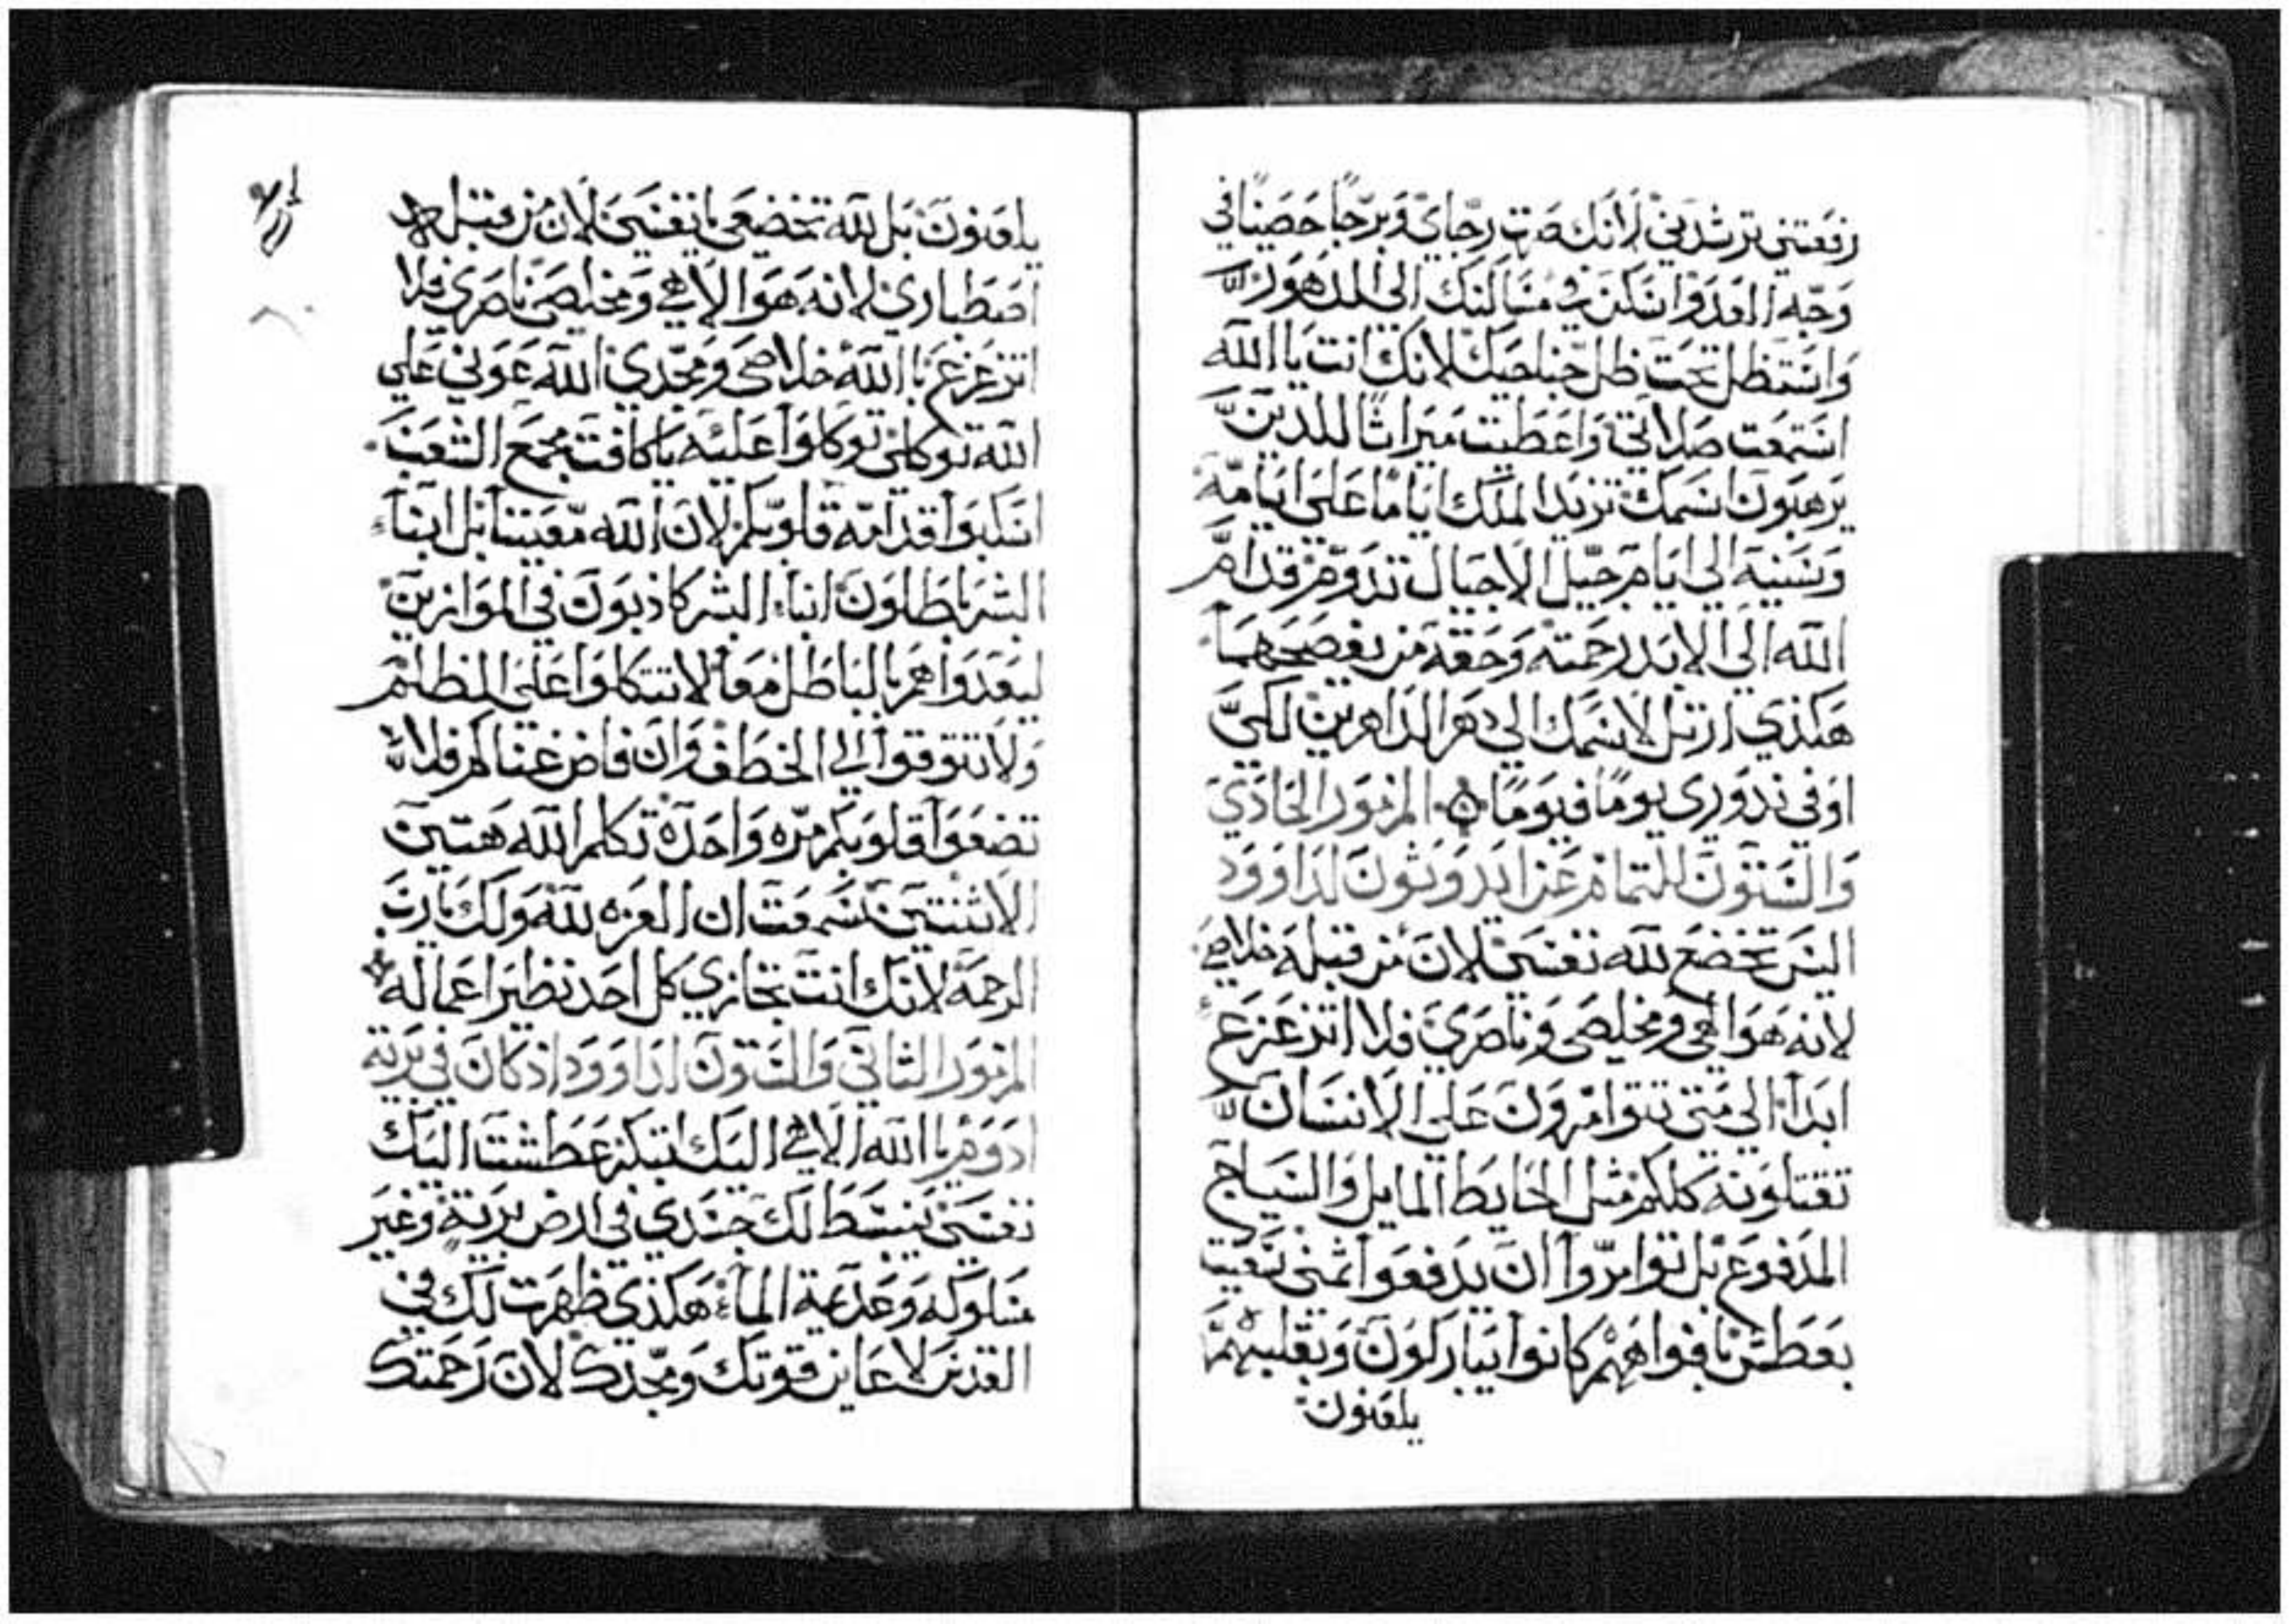 رفعتني ترشدني لانك صرت رجاي وبرجا حصينا في
وجه العدو اسكن في مسالنك الي الدهور
واستظل تحت ظل جناحيك لانك انت يا الله
استمعت صلاتي واعطيت ميراثا للدين
يرهبون اسمك تزيد الملك اياما علي ايامه
وسنيه الي ايام جيل الاجيال تدوم قدام
الله الي الابد رحمته وحقه من يفصحهما
هكذي ارتل لاسمك الي دهر الداهرين لكي
اوفي ندوري يوما فيوما المزمور الحادي
والستون للتمام عن ايدوثون لداوود
اليس تخضع لله نفسي لان من قبله خلاصي
لانه هو الهي ومخلصي وناصري فلا اتزعزع
ابدا الي متي تتوامرون علي الانسان
تقتلونه كلكم مثل الحايط المايل والسياج
المدفوع بل توامروا ان يدفعوا ثمني سعيت
بعطش بافواههم كانوا يباركون وبقلبهم
يلعنون
يلعنون بل لله تخضعي يا نفسي لان من قبله
اصطباري لانه هو الاهي ومخلصي ناصري فلا
اتزعزع با الله خلاصي ومجدي الله عوني علي
الله توكلي توكلوا عليه يا كافت مجمع الشعب
اسكبوا قدامه قلوبكم لان الله معيننا بل ابناء
البشر باطلون ابناء البشر كاذبون في الموازين
ليعدوا هم بالباطل معا لا تتكلوا علي الظلم
ولا تتوقوا الي الخطف وان فاض غناكم فلا
تضعوا قلوبكم مره واحدة تكلم الله هتين
الاثنتين سمعت ان العزه لله ولك يا رب
الرحمة لانك انت تجازي كل احد نظير اعماله
المزمور الثاني والستون لداوود اذ كان في برية
ادوم يا الله الاهي اليك ابتكر عطشت اليك
نفسي ينبسط لك جسدي في ارض برية وغير
مسلوكه وعديمة الماء هكذي ظهرت لك في
القدس لاعاين قوتك ومجدك لان رحمتك